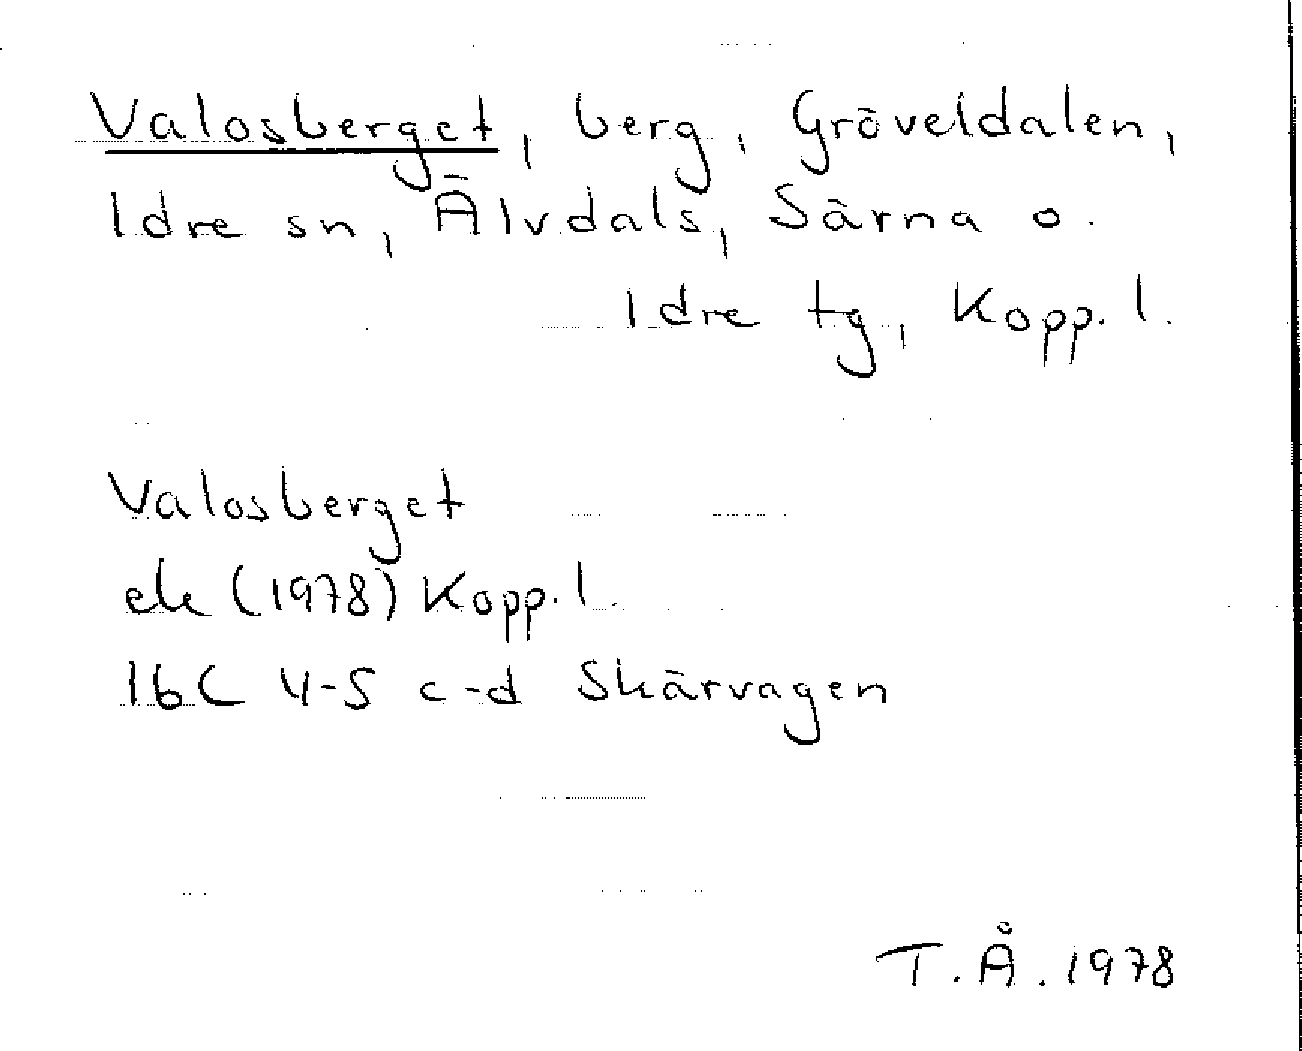 Valosberget, berg, Gröveldalen,
Idre sn, Älvdals, Särna o.
Idre tg, Kopp. l.
Valosberget
ek (1978) Kopp. l.
16C 4-5 c-d Skärvagen
T.Å. 1978